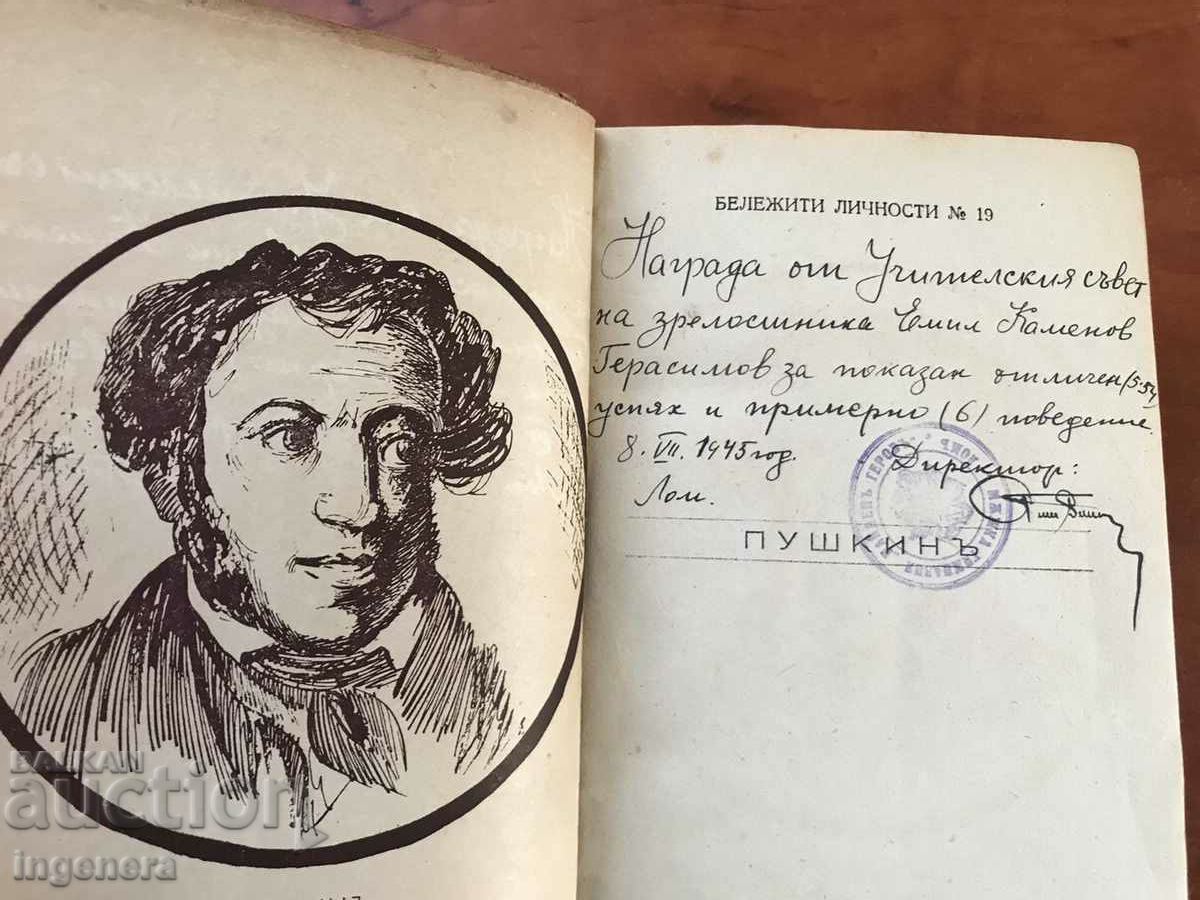 БЕЛЕЖИТИ ЛИЧНОСТИ № 19
Награда от Учителския съвет
на зрелостника Емил Каменов
Герасимов за показан отличен (5.54)
успях и примерно (6) поведение.
8. VII. 1945 год.
Директор:
Лом.
ПУШКИНЪ
БАЛКАН
auction
ingenera